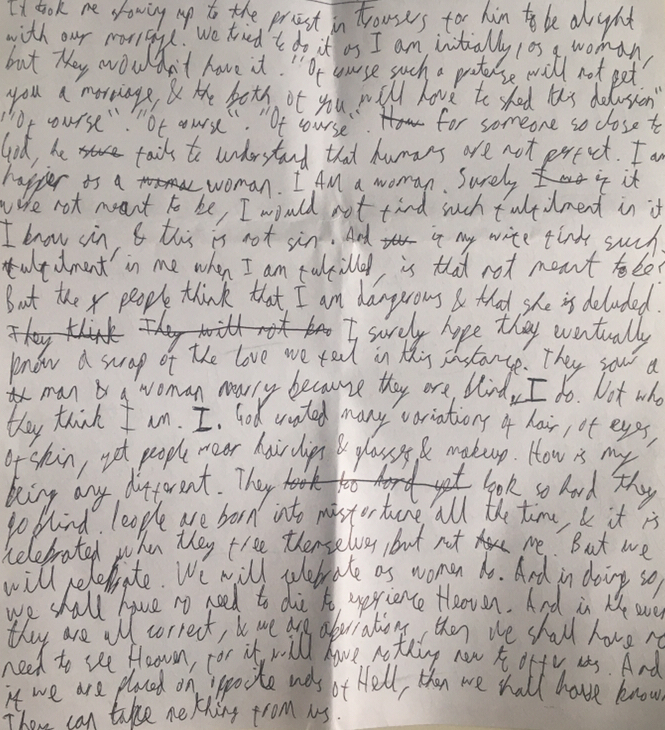 It took me showing up to the priest in trousers for him to be alright
with our marriage. We tried to do it as I am initially, as a woman,
but they wouldn't have it. "Of course such a pretense will not get
you a marriage, & the both of you will have to shed this delusion"
"Of course". "Of course". "Of course". How for someone so close to
God, he sure fails to understand that humans are not perfect. I am
happier as a woman. I AM a woman. Surely I was if it
were not meant to be, I would not find such fulfilment in it
I know sin, & this is not sin. And if my wife finds such
fulfilment in me when I am fulfilled, is that not meant to be?
But the people think that I am dangerous & that she is deluded.
They think They will not kno I surely hope they eventually
know a scrap of the love we feel in this instance. They saw a
man & a woman marry because they are blind. I do. Not who
they think I am. I. God created many variations of hair, of eyes,
of skin, yet people wear hairclips & glasses & makeup. How is my
being any different. They look too hard yet look so hard they
go blind. People are born into misfortune all the time, & it is
celebrated when they free themselves, but not me. But we
will celebrate. We will celebrate as women do. And in doing so,
we shall have no need to die to experience Heaven. And in the even
they are all correct, & we are aberrations, then we shall have no
need to see Heaven, for it will have nothing new to offer us. And
if we are placed on opposite ends of Hell, then we shall have known
They can take nothing from us.